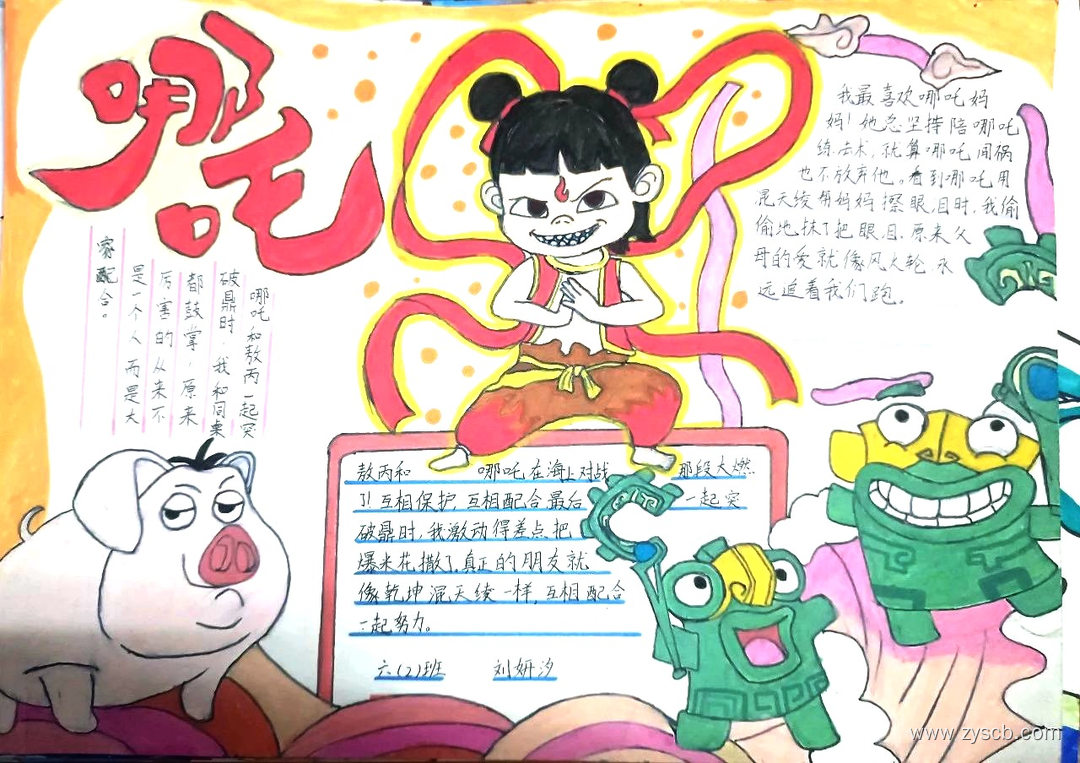 哪吒
我最喜欢哪吒妈
妈！她总坚持陪哪吒
练法术，就算哪吒闯祸
也不放弃他。看到哪吒用
混天绫帮妈妈擦眼泪时，我偷
偷地抹了把眼泪，原来父
母的爱就像风火轮，永
远追着我们跑。
哪吒和敖丙一起突
破鼎时，我和同桌
都鼓掌，原来
厉害的从来不
是一个人而是大
家配合。
敖丙和 哪吒在海上对战 那段太燃
了！互相保护，互相配合最后 一起突
破鼎时，我激动得差点把
爆米花撒了，真正的朋友就
像乾坤混天绫一样，互相配合
一起努力。
六(2)班 刘妍汐
www.zyscb.com